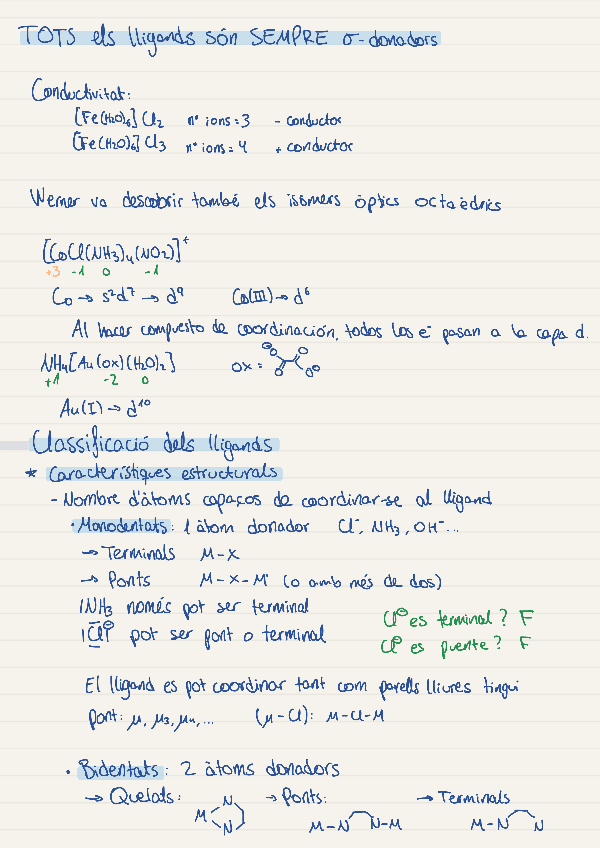 TOTS els lligands són SEMPRE σ-donadors
Conductivitat:
[Fe(H2O)6]Cl2 nº ions=3 - conductor
[Fe(H2O)6]Cl3 nº ions=4 + conductor
Werner va descobrir també els isòmers òptics octaèdrics
[CoCl(NH3)4(NO2)]+
+3 -1 0 -1
Co → s²d⁷ → d⁹ Co(III) → d⁶
Al hacer compuesto de coordinación, todos los e⁻ pasan a la capa d.
NH4[Au(ox)(H2O)2] ox =
+1 -2 0
Au(I) → d¹⁰
Classificació dels lligands
* Característiques estructurals
- Nombre d'àtoms capaços de coordinar-se al lligand
· Monodentats: 1 àtom donador Cl⁻, NH3, OH⁻...
→ Terminals M-X
→ Ponts M-X-M' (o amb més de dos)
|NH3 només pot ser terminal
|Cl|⊖ pot ser pont o terminal
Cl⊖ es terminal? F
Cl⊖ es puente? F
El lligand es pot coordinar tant com parells lliures tingui
pont: μ, μ3, μ4,... (μ-Cl): M-Cl-M
· Bidentats: 2 àtoms donadors
→ Quelats: → Ponts: → Terminals
M N N M-N N-M M-N N